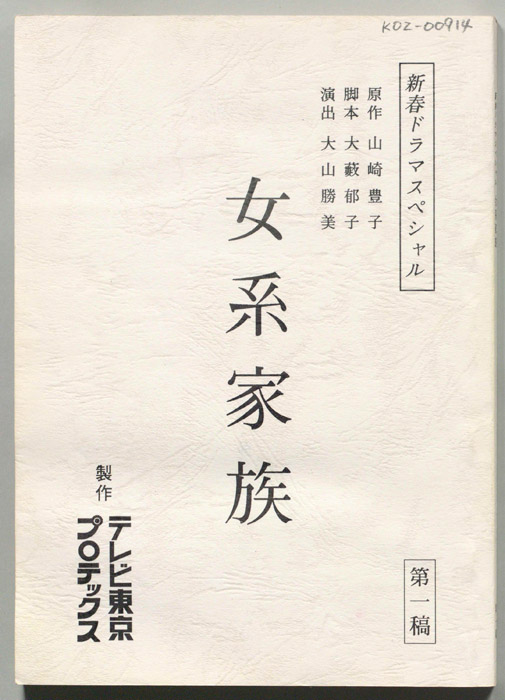 KO2-00914
新春ドラマスペシャル
原作 山崎豊子
脚本 大藪郁子
演出 大山勝美
女系家族
第一稿
製作
テレビ東京
プロテックス